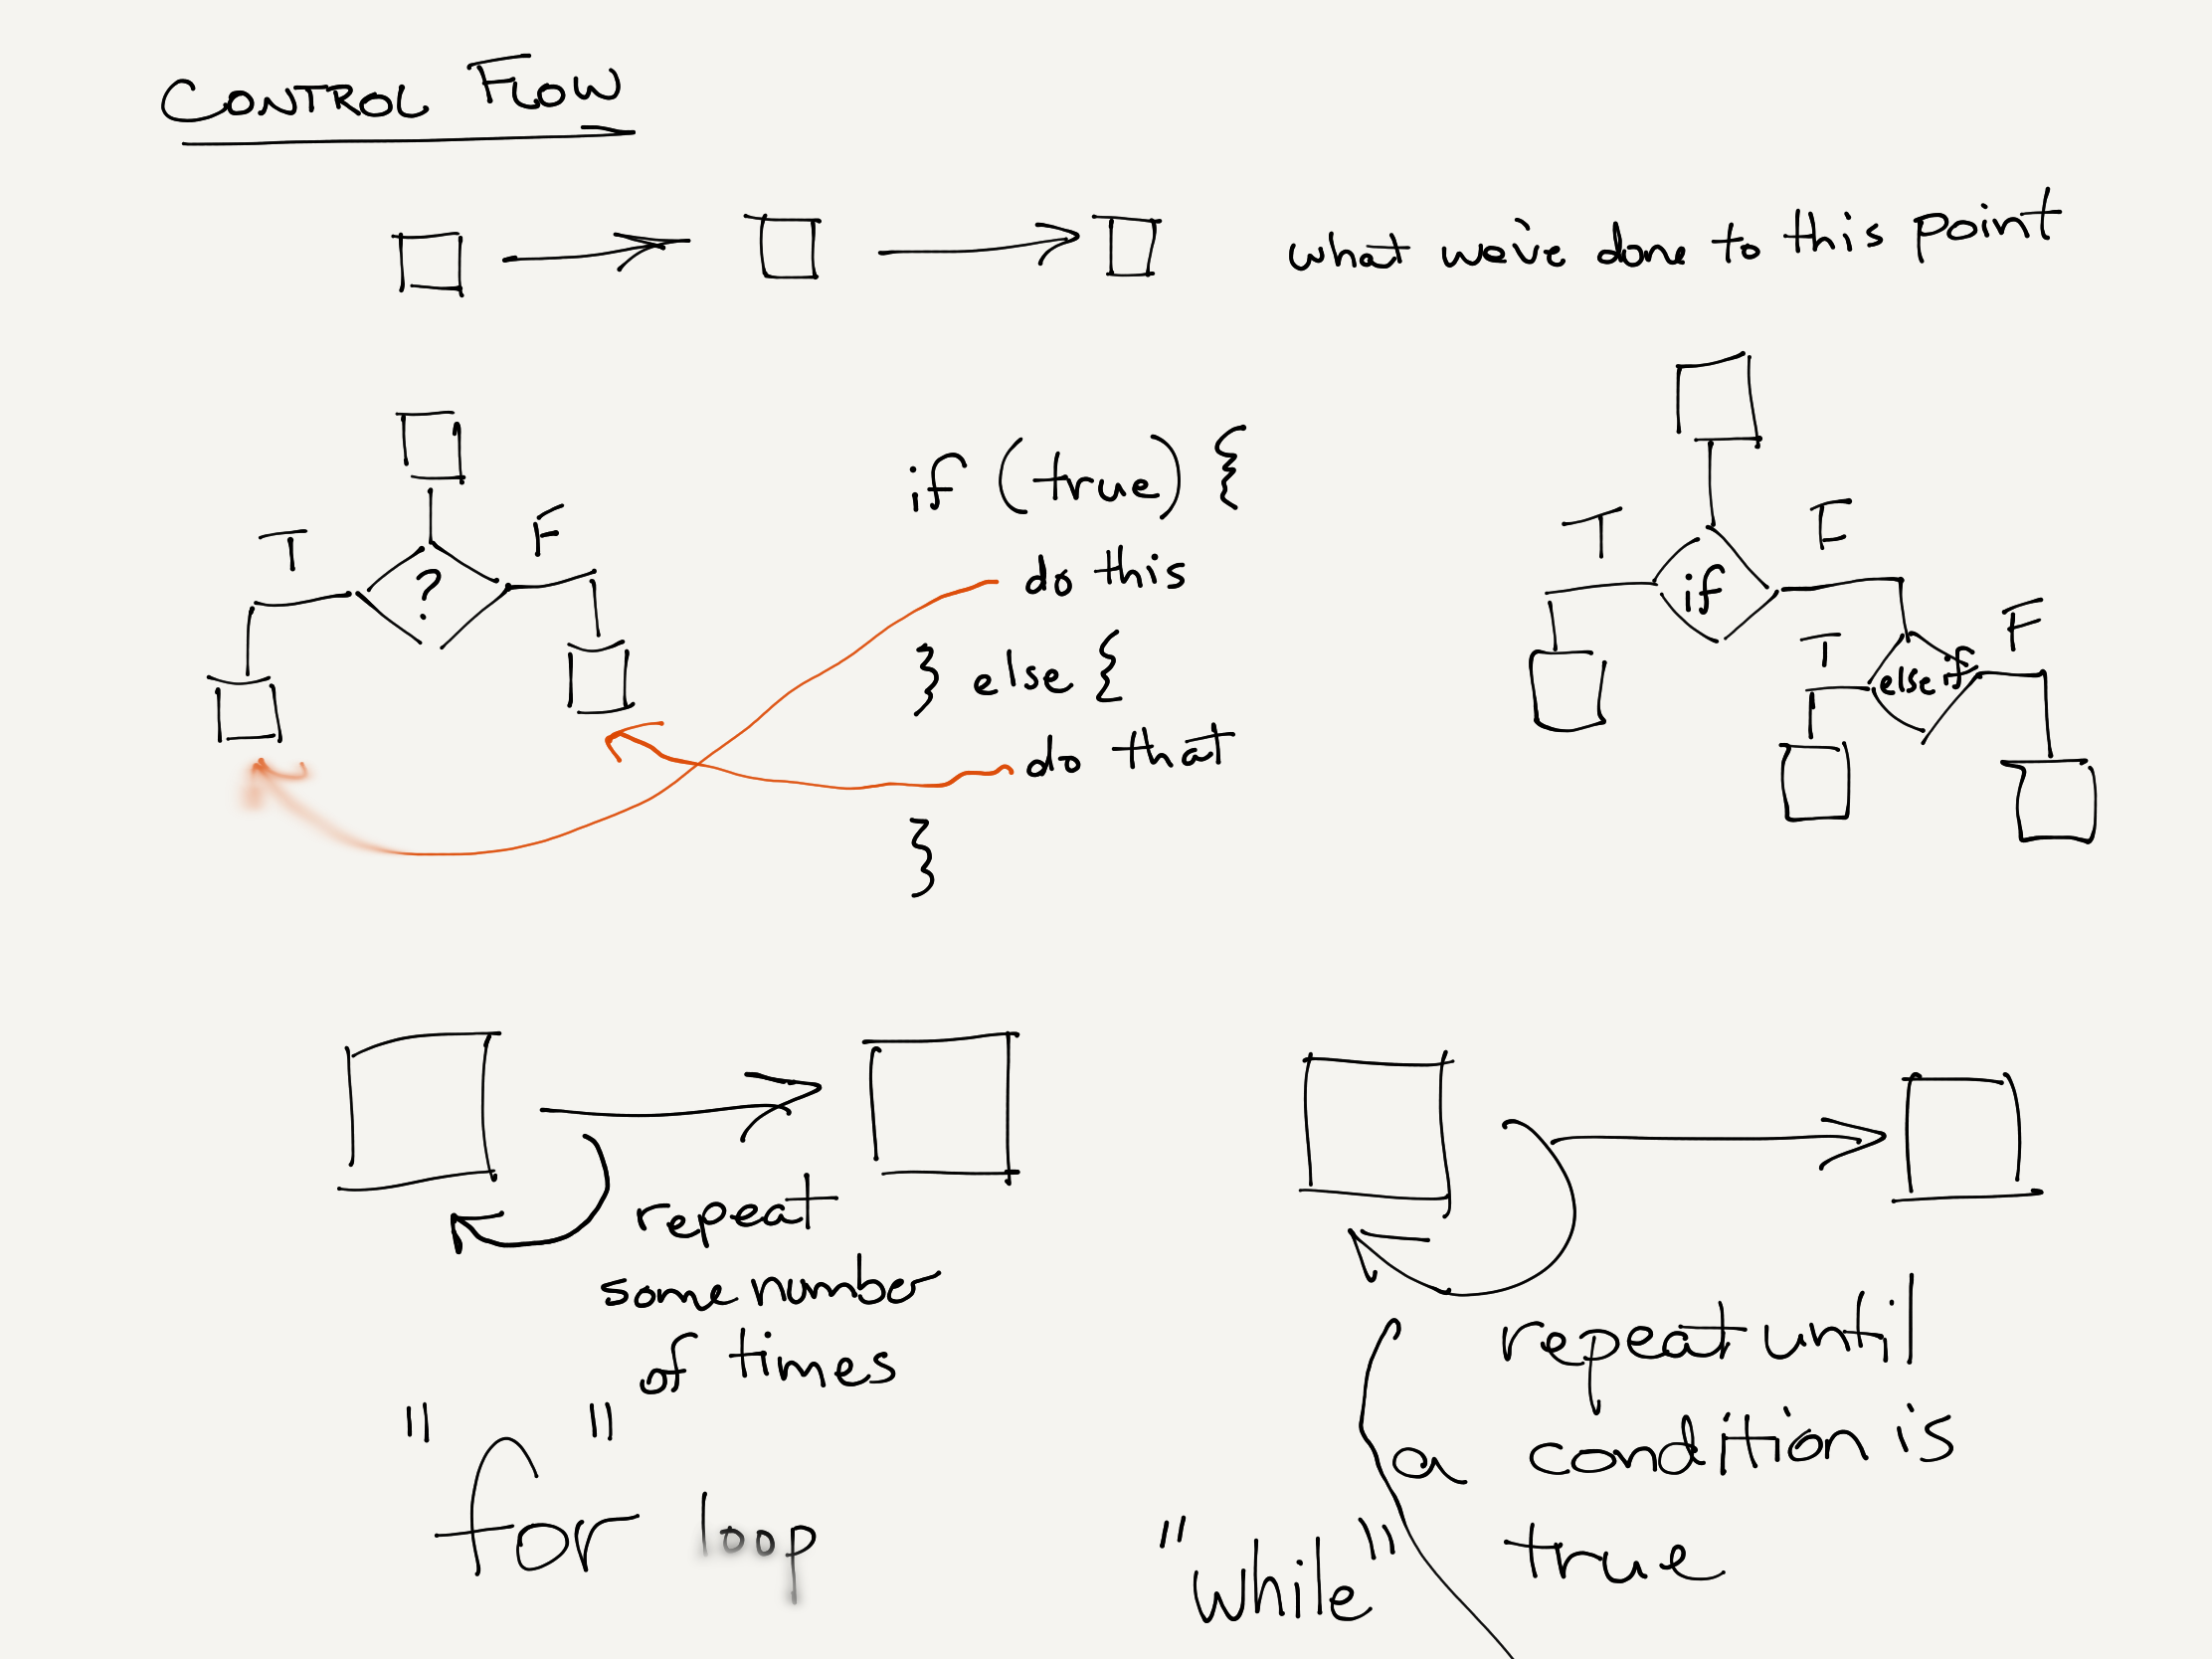 CONTROL FLOW
what we've done to this point
T
?
F
if (true) {
do this
} else {
do that
}
T
if
F
T
else if
F
repeat
some number
of times
"for" loop
repeat until
a condition is
true
"while"